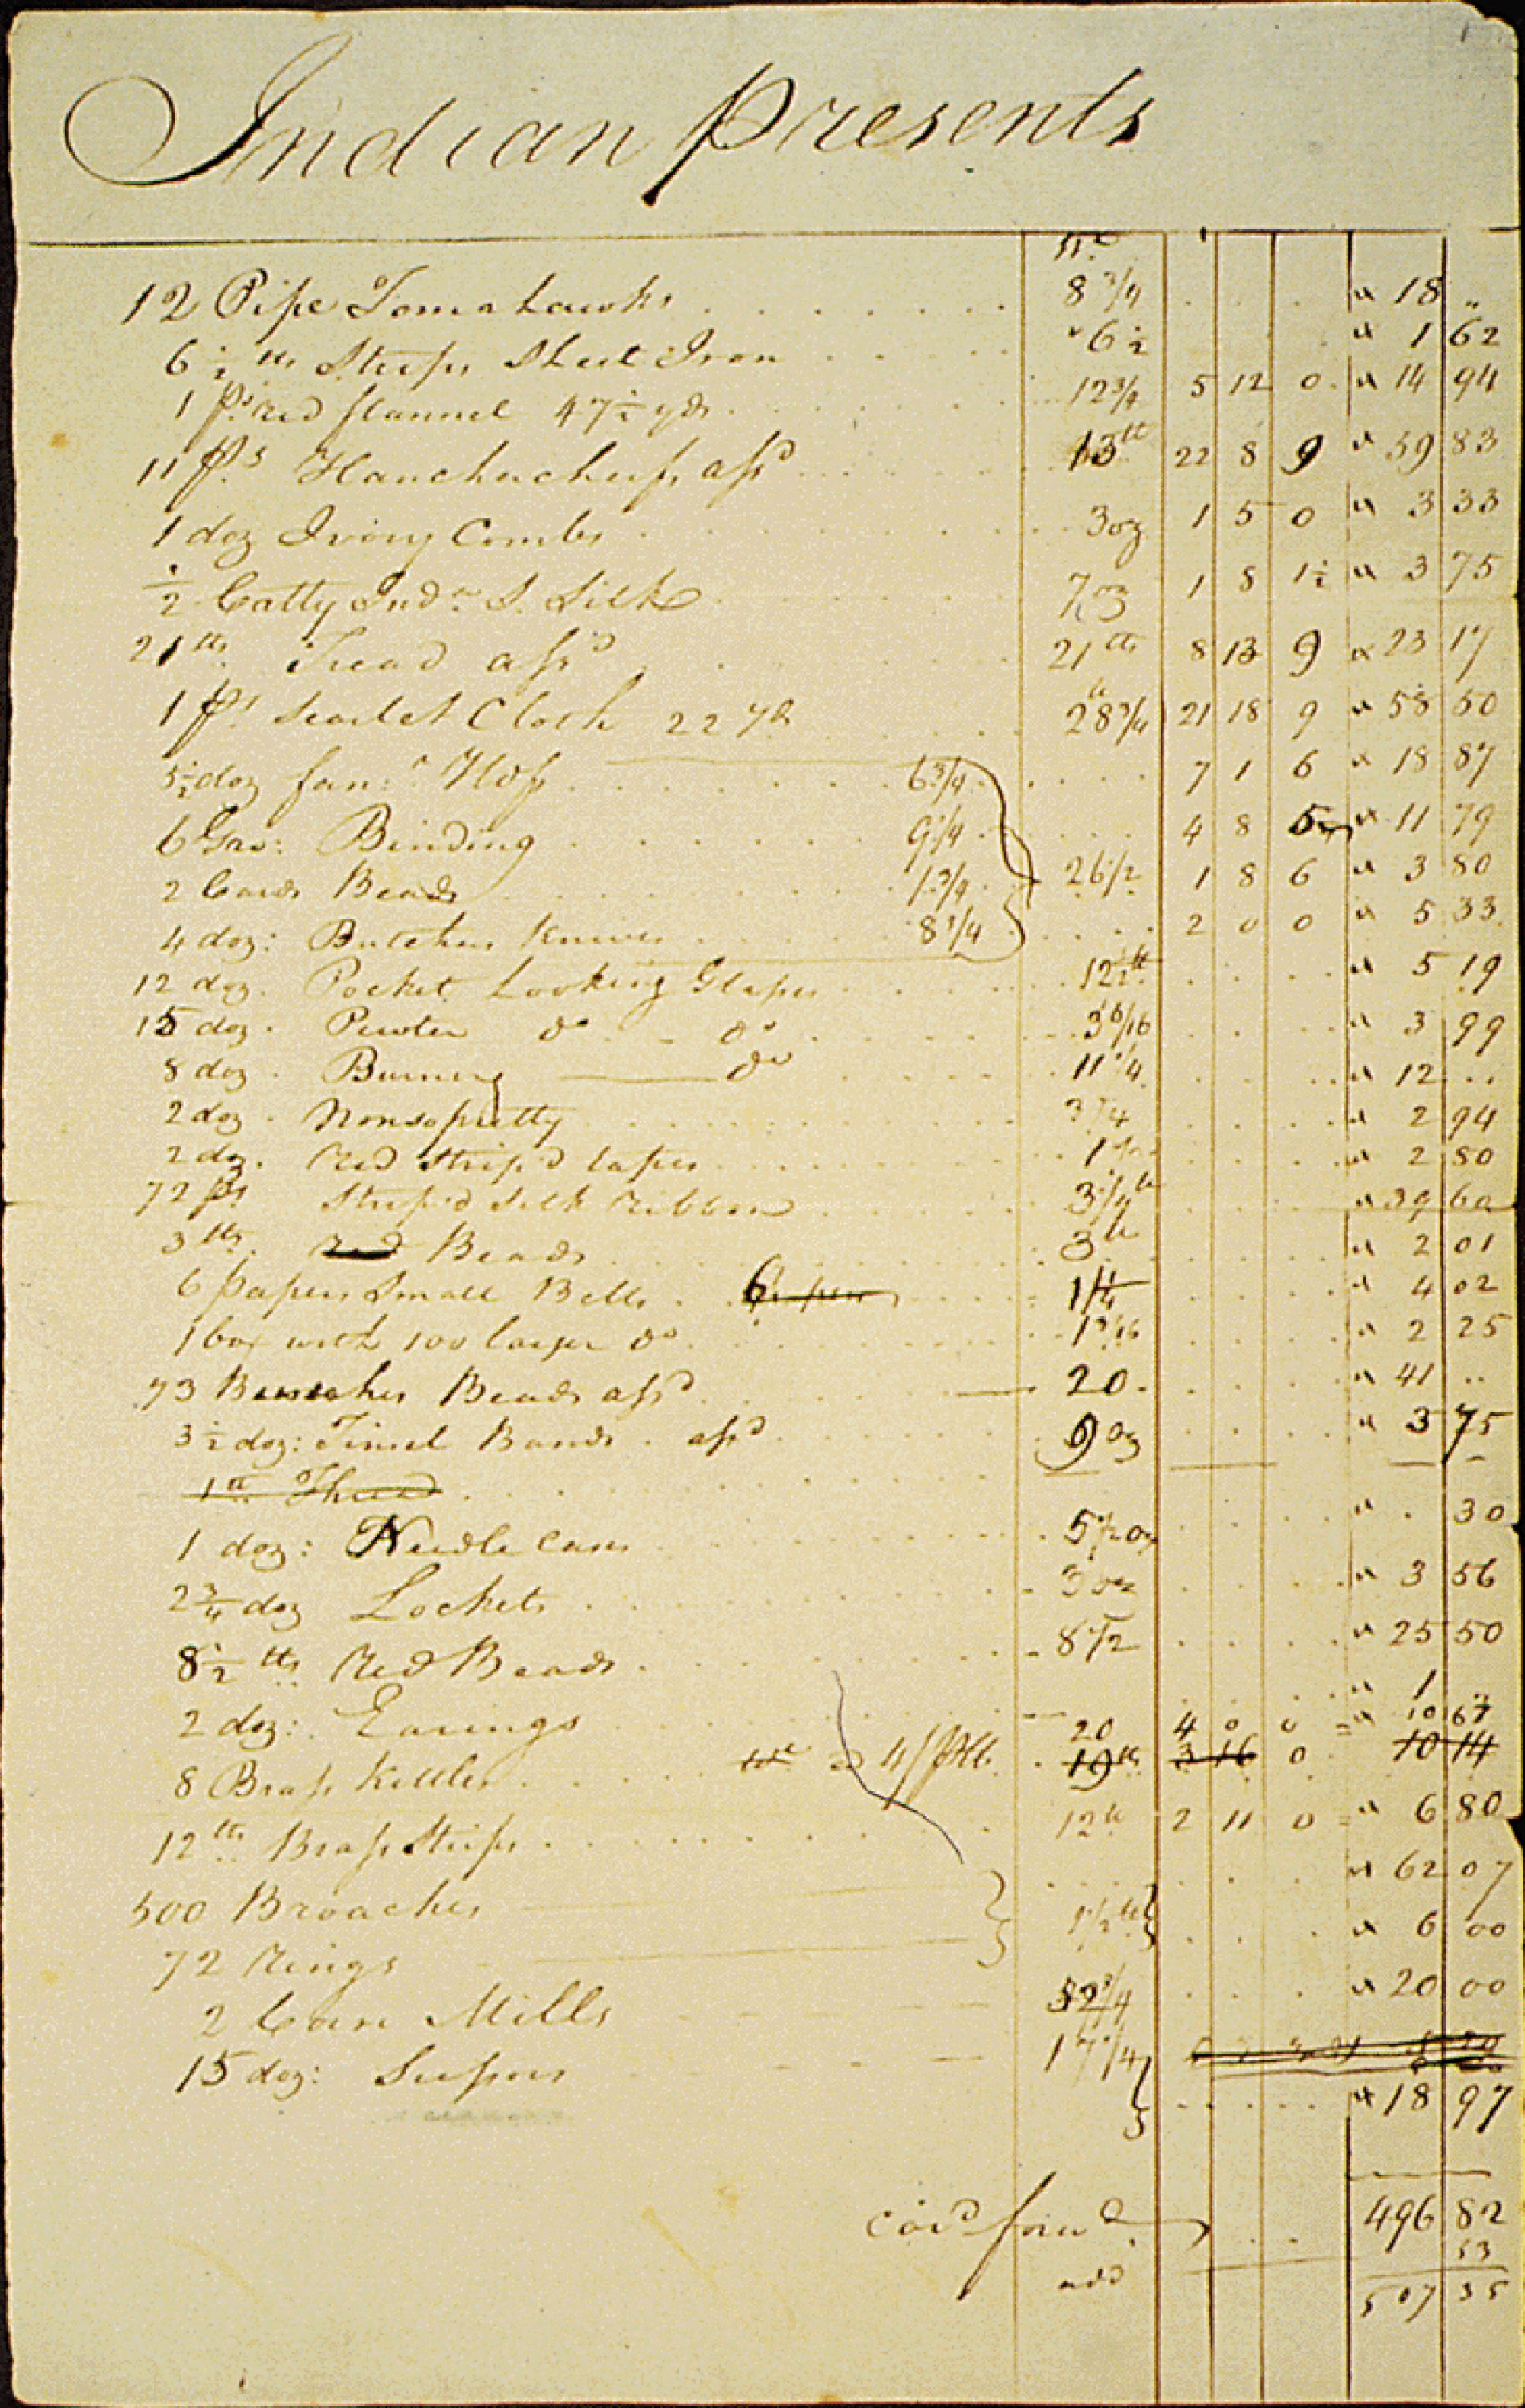 Indian Presents
Wt
12 Pipe Tomahawks 8 3/4 " 18 "
6 1/2 lbs Strips Sheet Iron " 6 1/2 " 1 62
1 Ps red flannel 47 1/2 yds 12 3/4 5 12 0 " 14 94
11 Ps Hanckercheifs assd 13 lb 22 8 9 " 59 83
1 doz Ivory Combs 3 oz 1 5 0 " 3 33
1/2 Catty Inda S. Silk 7 oz 1 8 1 1/2 " 3 75
21 lbs Tread assd 21 lbs 8 13 9 " 23 17
1 Ps Scarlet Cloth 22 yds 28 3/4 lb 21 18 9 " 58 50
5 1/2 doz fan: Hdfs 6 3/4 7 1 6 " 18 87
6 Gro: Binding 9 1/4 4 8 5 " 11 79
2 Cards Beads 1 3/4 26 1/2 1 8 6 " 3 80
4 doz: Butcher Knives 8 3/4 2 0 0 " 5 33
12 doz. Pocket Looking Glasses 12 1/2 lb " 5 19
15 doz. Pewter do do 3 6/16 " 3 99
8 doz. Burning do 11 1/4 " 12 ..
2 doz. Nonsopretty 3 1/4 " 2 94
2 doz. Red Strip'd tapes " 2 80
72 ps Strip'd Silk Ribbon 3 1/4 lb " 39 60
3 lbs. Red Beads 3 lb " 2 01
6 papers Small Bells 1 1/4 " 4 02
1 box with 100 larger do 1 3/16 " 2 25
73 Bunches Beads assd 20 " 41 ..
3 1/2 doz: Tinsel Bands assd 9 oz " 3 75
1 lb Thread
1 doz: Needle Cases 5 1/2 oz " . 30
2 3/4 doz Lockets 3 oz " 3 56
8 1/2 lbs Red Beads 8 1/2 " 25 50
2 doz: Earings " 1 ..
20 4 0 0 = " 10 67
8 Brass Kettles wt a 4/ P lb. 19 lb 3 16 0 10 14
12 lbs Brass Strips 12 lb 2 11 0 = " 6 80
500 Broaches " 62 07
72 Rings 1 1/2 lb " 6 00
2 Corn Mills 52 3/4 " 20 00
15 doz: Scissors 17 1/4
" 18 97
Card forwd 496 82
add 53
507 35